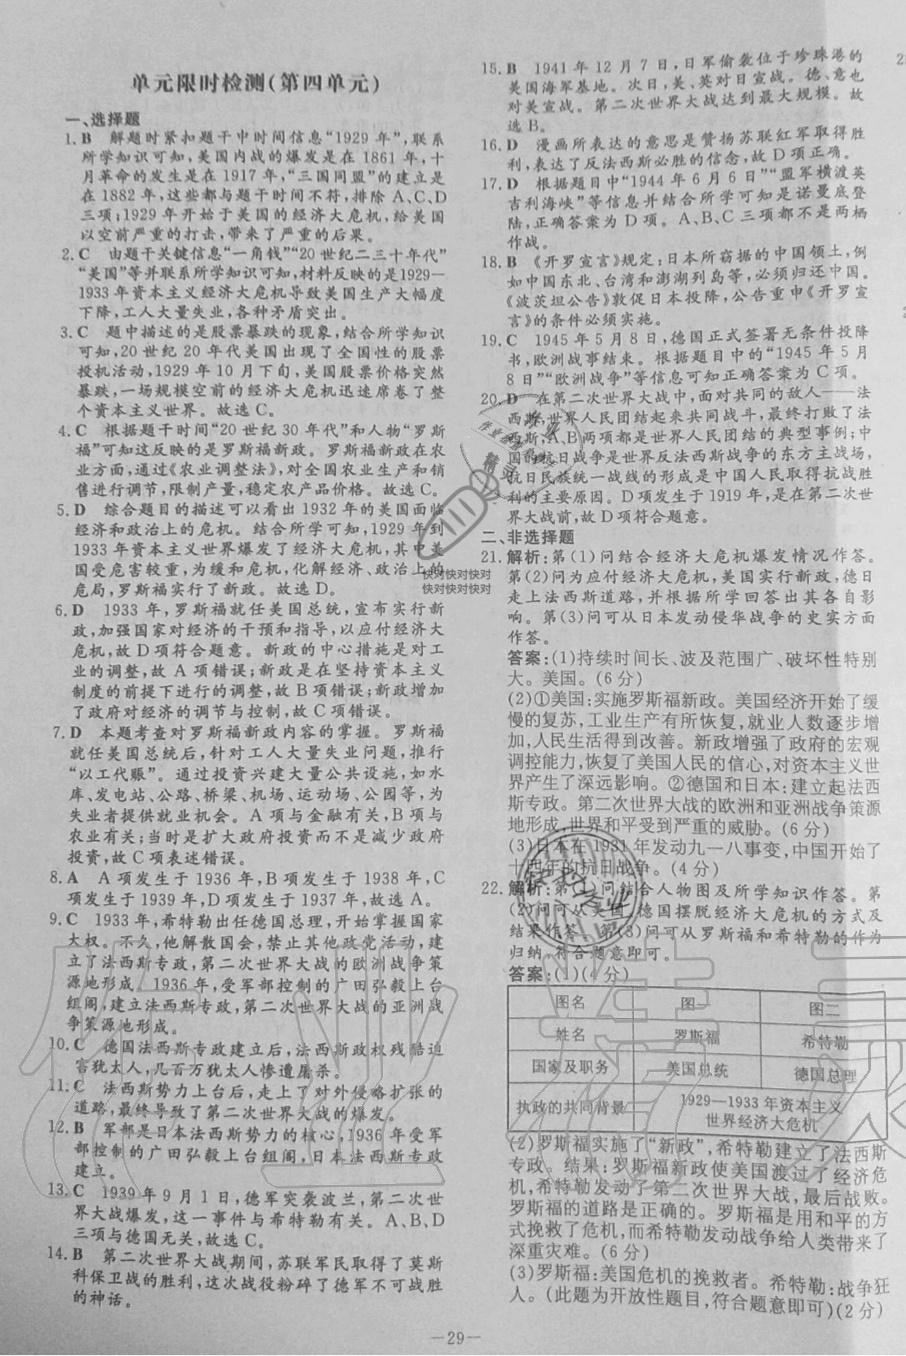 单元限时检测(第四单元)
一、选择题
1. B 解题时紧扣题干中时间信息“1929 年”,联系
所学知识可知,美国内战的爆发是在 1861 年,十
月革命的发生是在 1917 年,“三国同盟”的建立是
在 1882 年,这些都与题干时间不符,排除 A、C、D
三项;1929 年开始于美国的经济大危机,给美国
以空前严重的打击,带来了严重的后果。
2. C 由题干关键信息“一角钱”“20 世纪二三十年代”
“美国”等并联系所学知识可知,材料反映的是1929—
1933 年资本主义经济大危机导致美国生产大幅度
下降,工人大量失业,各种矛盾突出。
3. C 题中描述的是股票暴跌的现象,结合所学知识
可知,20 世纪 20 年代美国出现了全国性的股票
投机活动,1929 年 10 月下旬,美国股票价格突然
暴跌,一场规模空前的经济大危机迅速席卷了整
个资本主义世界。故选 C。
4. C 根据题干时间“20 世纪 30 年代”和人物“罗斯
福”可知这反映的是罗斯福新政。罗斯福新政在农
业方面,通过《农业调整法》,对全国农业生产和销
售进行调节,限制产量,稳定农产品价格。故选 C。
5. D 综合题目的描述可以看出 1932 年的美国面临
经济和政治上的危机。结合所学可知,1929 年到
1933 年资本主义世界爆发了经济大危机,其中美
国受危害较重,为缓和危机,化解经济、政治上的
危局,罗斯福实行了新政。故选 D。
6. D 1933 年,罗斯福就任美国总统,宣布实行新
政,加强国家对经济的干预和指导,以应付经济大
危机,故 D 项符合题意。新政的中心措施是对工
业的调整,故 A 项错误;新政是在坚持资本主义
制度的前提下进行的调整,故 B 项错误;新政增
加了政府对经济的调节与控制,故 C 项错误。
7. D 本题考查对罗斯福新政内容的掌握。罗斯福
就任美国总统后,针对工人大量失业问题,推行
“以工代赈”。通过投资兴建大量公共设施,如水
库、发电站、公路、桥梁、机场、运动场、公园等,为
失业者提供就业机会。A 项与金融有关,B 项与
农业有关;当时是扩大政府投资而不是减少政府
投资,故 C 项表述错误。
8. A A 项发生于 1936 年,B 项发生于 1938 年,C
项发生于 1939 年,D 项发生于 1937 年,故选 A。
9. C 1933 年,希特勒出任德国总理,开始掌握国家
大权。不久,他解散国会,禁止其他政党活动,建立
了法西斯专政,第二次世界大战的欧洲战争策
源地形成。1936 年,受军部控制的广田弘毅上台
组阁,建立法西斯专政,第二次世界大战的亚洲战
争策源地形成。
10. C 德国法西斯专政建立后,法西斯政权残酷迫
害犹太人,几百万犹太人惨遭屠杀。
11. C 法西斯势力上台后,走上了对外侵略扩张的
道路,最终导致了第二次世界大战的爆发。
12. B 军部是日本法西斯势力的核心,1936 年受军
部控制的广田弘毅上台组阁,日本法西斯专政
建立。
13. C 1939 年 9 月 1 日,德军突袭波兰,第二次世
界大战爆发,这一事件与希特勒有关。A、B、D
三项与德国无关,故选 C。
14. B 第二次世界大战期间,苏联军民取得了莫斯
科保卫战的胜利,这次战役粉碎了德军不可战胜
的神话。
15. B 1941 年 12 月 7 日,日军偷袭位于珍珠港的
美国海军基地。次日,美、英对日宣战。德、意也
对美宣战。第二次世界大战达到最大规模。故
选 B。
16. D 漫画所表达的意思是赞扬苏联红军取得胜
利,表达了反法西斯必胜的信念,故 D 项正确。
17. D 根据题目中“1944 年 6 月 6 日”“盟军横渡英
吉利海峡”等信息并结合所学可知是诺曼底登
陆,正确答案为 D 项。A、B、C 三项都不是两栖
作战。
18. B 《开罗宣言》规定:日本所窃据的中国领土,例
如中国东北、台湾和澎湖列岛等,必须归还中国。
《波茨坦公告》敦促日本投降,公告重申《开罗宣
言》的条件必须实施。
19. C 1945 年 5 月 8 日,德国正式签署无条件投降
书,欧洲战事结束。根据题目中的“1945 年 5 月
8 日”“欧洲战争”等信息可知正确答案为 C 项。
20. D 在第二次世界大战中,面对共同的敌人——法
西斯,世界人民团结起来共同战斗,最终打败了法
西斯,A、B两项都是世界人民团结的典型事例;中
国的抗日战争是世界反法西斯战争的东方主战场,
抗日民族统一战线的形成是中国人民取得抗战胜
利的主要原因。D 项发生于 1919 年,是在第二次世
界大战前,故D项符合题意。
二、非选择题
21. 解析:第(1)问结合经济大危机爆发情况作答。
第(2)问为应付经济大危机,美国实行新政,德日
走上法西斯道路,并根据所学回答出其各自影
响。第(3)问可从日本发动侵华战争的史实方面
作答。
答案:(1)持续时间长、波及范围广、破坏性特别
大。美国。(6 分)
(2)①美国:实施罗斯福新政。美国经济开始了缓
慢的复苏,工业生产有所恢复,就业人数逐步增
加,人民生活得到改善。新政增强了政府的宏观
调控能力,恢复了美国人民的信心,对资本主义世
界产生了深远影响。②德国和日本:建立起法西
斯专政。第二次世界大战的欧洲和亚洲战争策源
地形成,世界和平受到严重的威胁。(6 分)
(3)日本在1931年发动九一八事变,中国开始了
十四年的抗日战争。(4 分)
22. 解析:第(1)问结合人物图及所学知识作答。第
(2)问可从美国、德国摆脱经济大危机的方式及
结果作答。第(3)问可从罗斯福和希特勒的作为
归纳,符合题意即可。
答案:(1)(4 分)
图名 图一 图二
姓名 罗斯福 希特勒
国家及职务 美国总统 德国总理
执政的共同背景 1929—1933 年资本主义
世界经济大危机
(2)罗斯福实施了“新政”,希特勒建立了法西斯
专政。结果:罗斯福新政使美国渡过了经济危
机,希特勒发动了第二次世界大战,最后战败。
罗斯福的道路是正确的。罗斯福是用和平的方
式挽救了危机,而希特勒发动战争给人类带来了
深重灾难。(6 分)
(3)罗斯福:美国危机的挽救者。希特勒:战争狂
人。(此题为开放性题目,符合题意即可)(2 分)
快对快对快对
快对快对快对
—29—